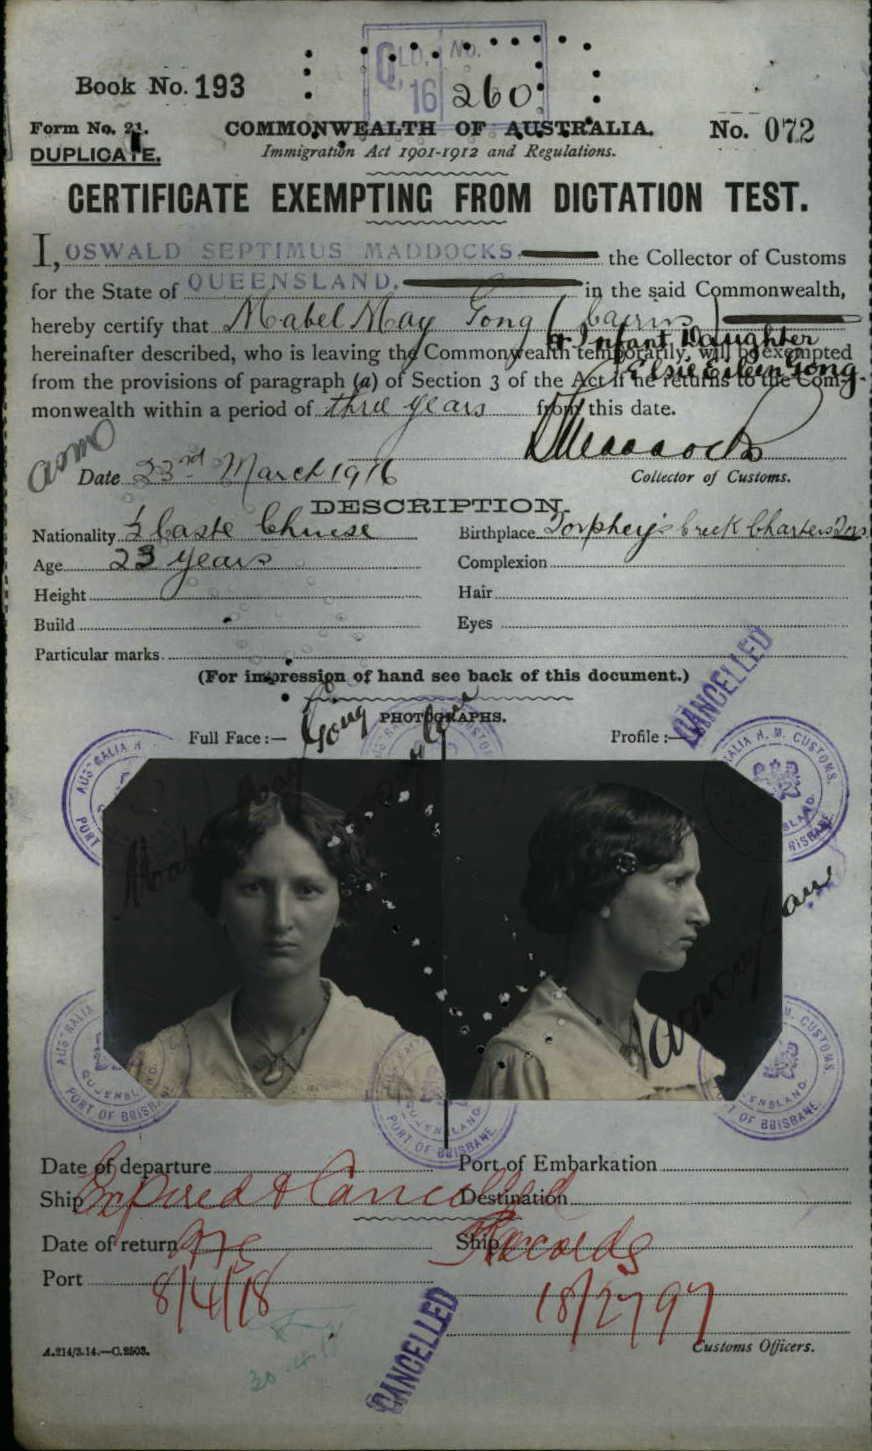 QLD. No.
'16 260
Book No. 193
Form No. 21.
COMMONWEALTH OF AUSTRALIA.
No. 072
DUPLICATE.
Immigration Act 1901-1912 and Regulations.
CERTIFICATE EXEMPTING FROM DICTATION TEST.
I, OSWALD SEPTIMUS MADDOCKS the Collector of Customs
for the State of QUEENSLAND. in the said Commonwealth,
hereby certify that Mabel May Gong (Cairns)
& Infant Daughter
hereinafter described, who is leaving the Commonwealth temporarily, will be exempted
Elsie Eileen Gong.
from the provisions of paragraph (a) of Section 3 of the Act if he returns to the Com-
monwealth within a period of three years from this date.
Date 23rd March 1916
Collector of Customs.
DESCRIPTION.
Nationality ½ Caste Chinese
Birthplace Torphey's Creek Charters Trs
Age 23 years
Complexion
Height
Hair
Build
Eyes
Particular marks.
(For impression of hand see back of this document.)
CANCELLED
PHOTOGRAPHS.
Full Face:—
Profile:—
Gong
AUSTRALIA H. M. CUSTOMS.
PORT OF BRISBANE
QUEENSLAND
Date of departure
Port of Embarkation
Ship
Destination
Expired & Cancelled
Date of return
Ship
Records
Port
8/4/18
18/2797
CANCELLED
A.214/3.14.—C.2503.
Customs Officers.